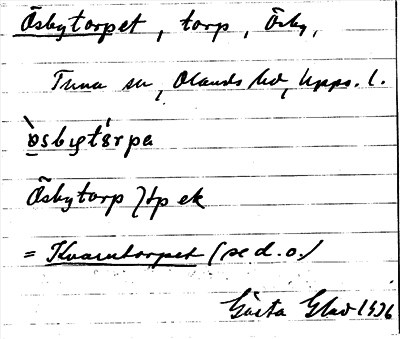 Ösbytorpet, torp, Ösby,
Tuna sn, Olands hd, Upps. l.
ò̱sbyta̱rpa
Ösbytorp } tp ek
= Kvarntorpet (se d. o.)
Gösta Glad 1936